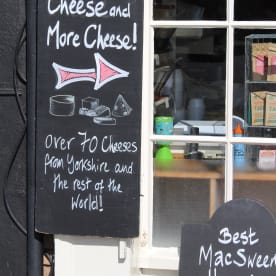 Cheese and
More Cheese!
Over 70 Cheeses
from Yorkshire and
the rest of the
World!
Best
MacSween